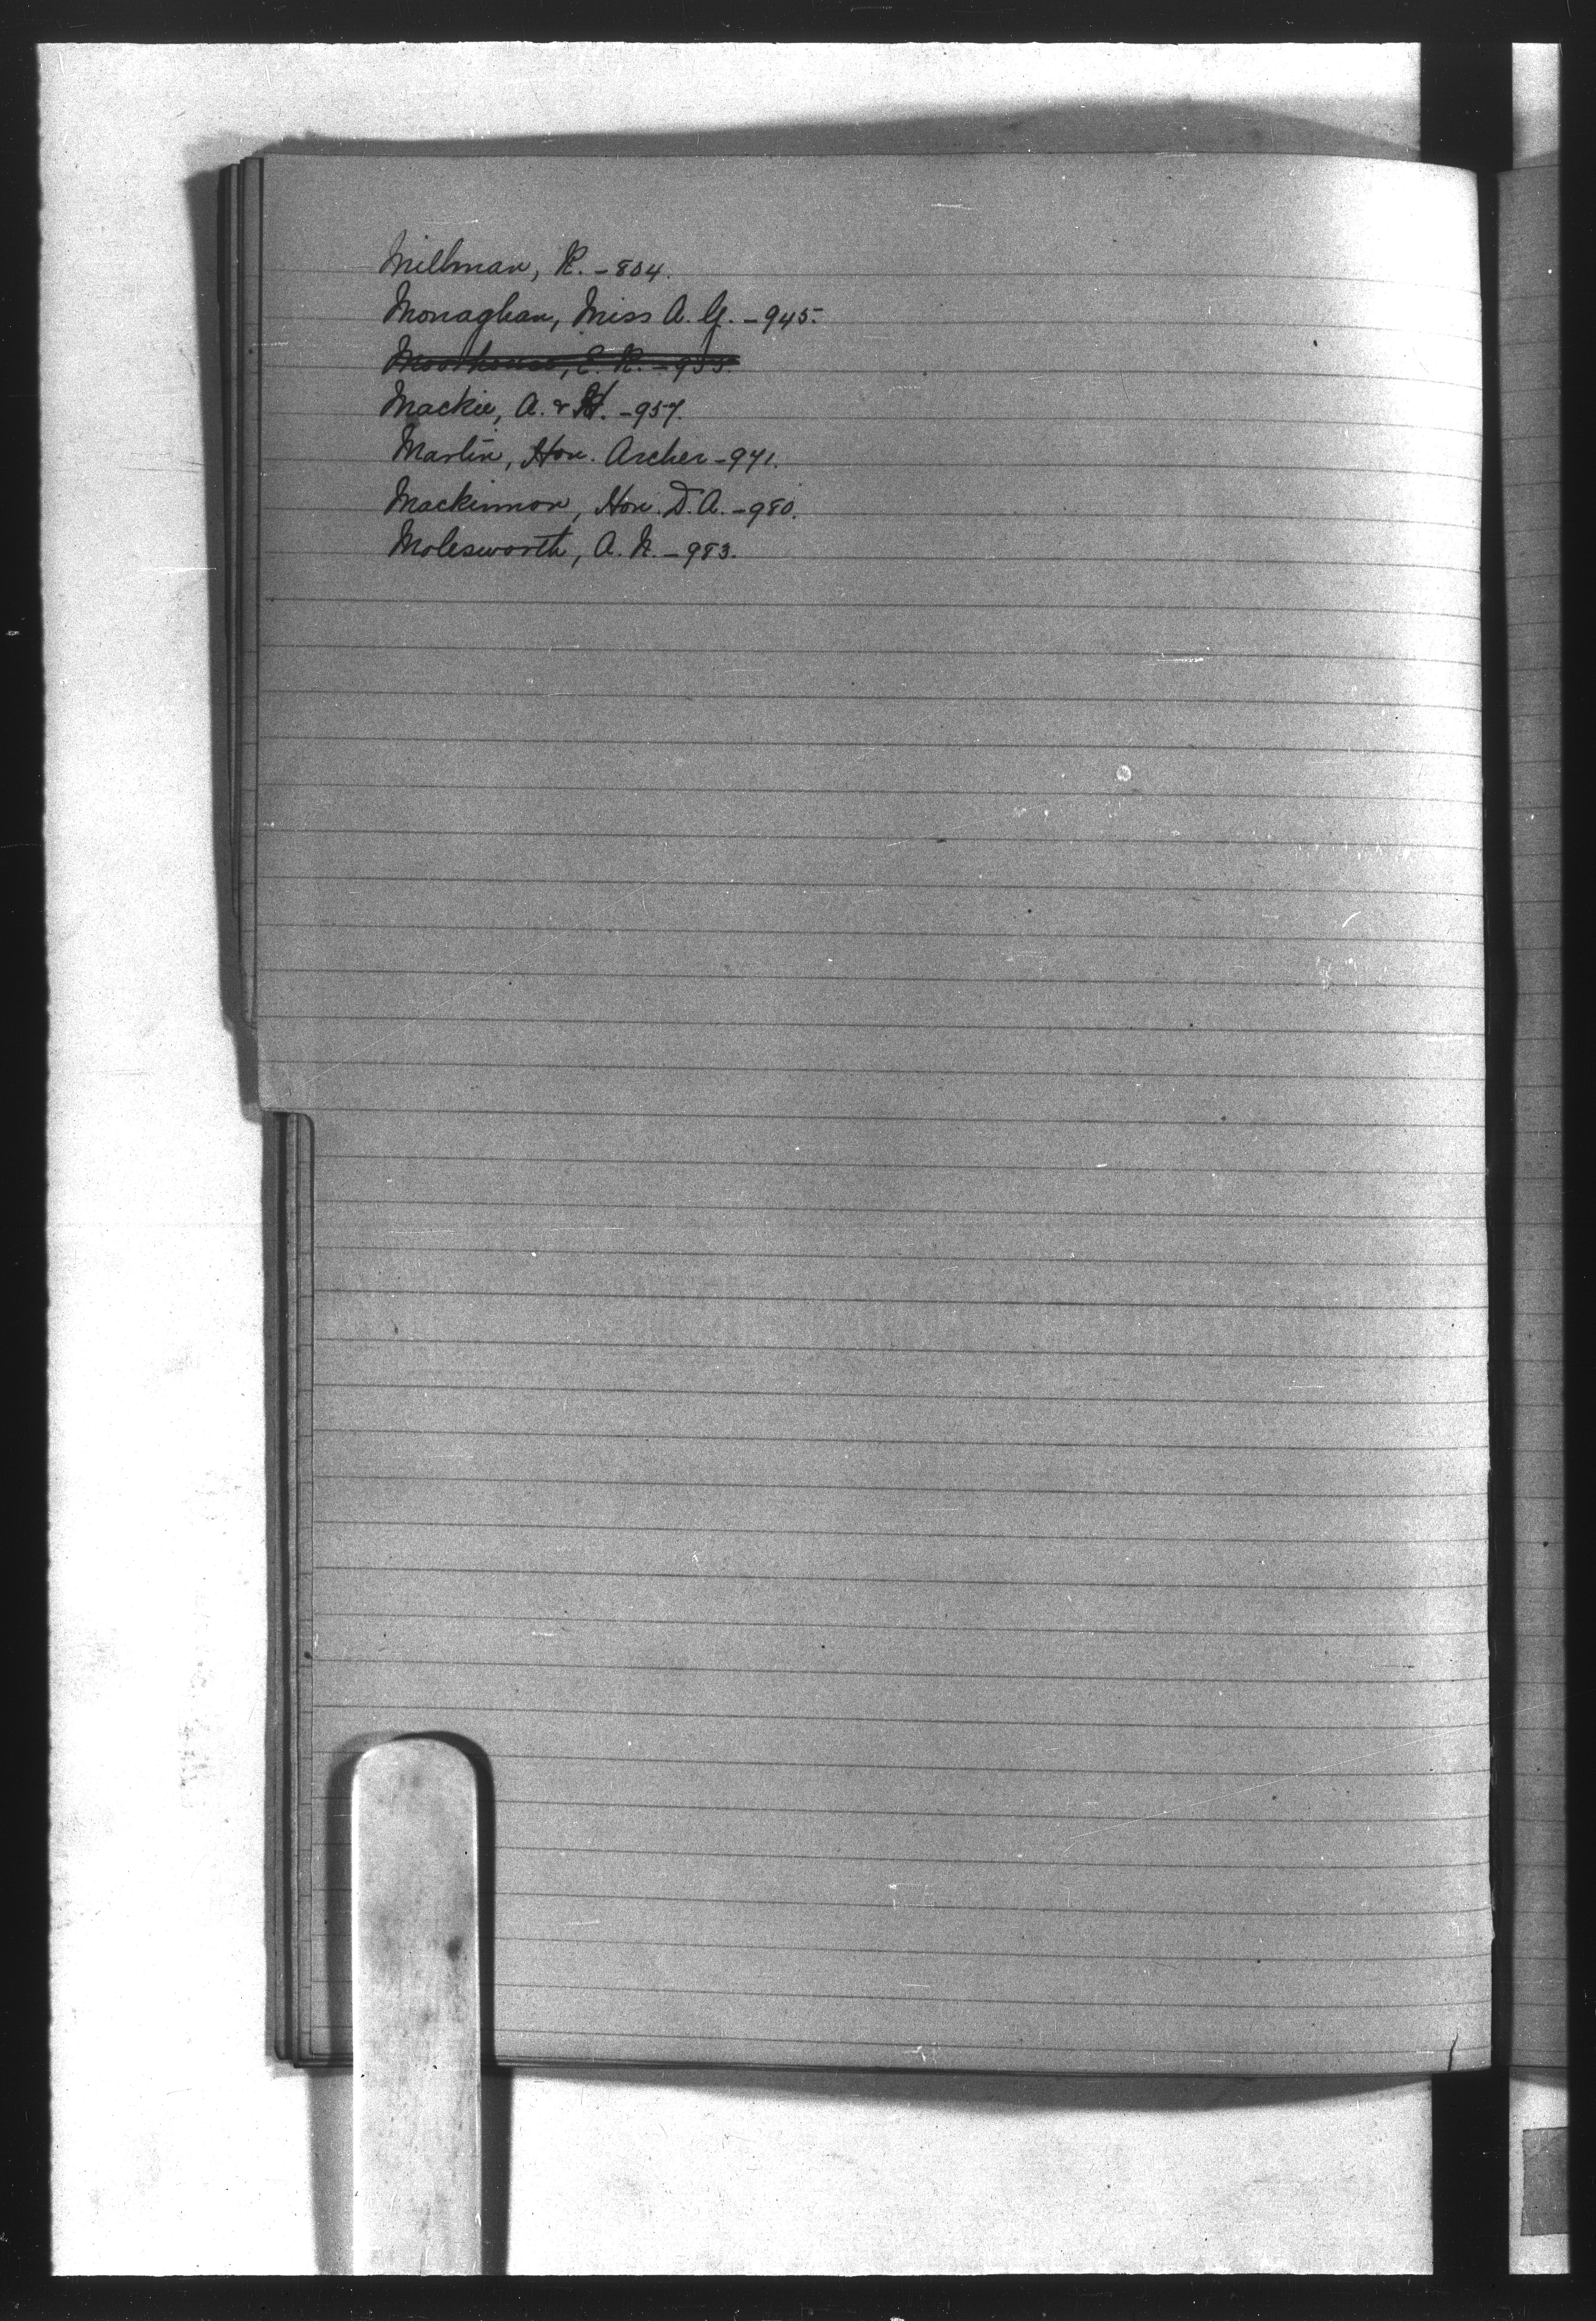 Millman, R. - 804.
Monaghan, Miss A. G. - 945.
Moorhouse, E. R. - 955.
Mackie, A. & H. - 957.
Martin, Hon. Archer - 971.
Mackinnon, Hon. D. A. - 980.
Molesworth, A. N. - 983.